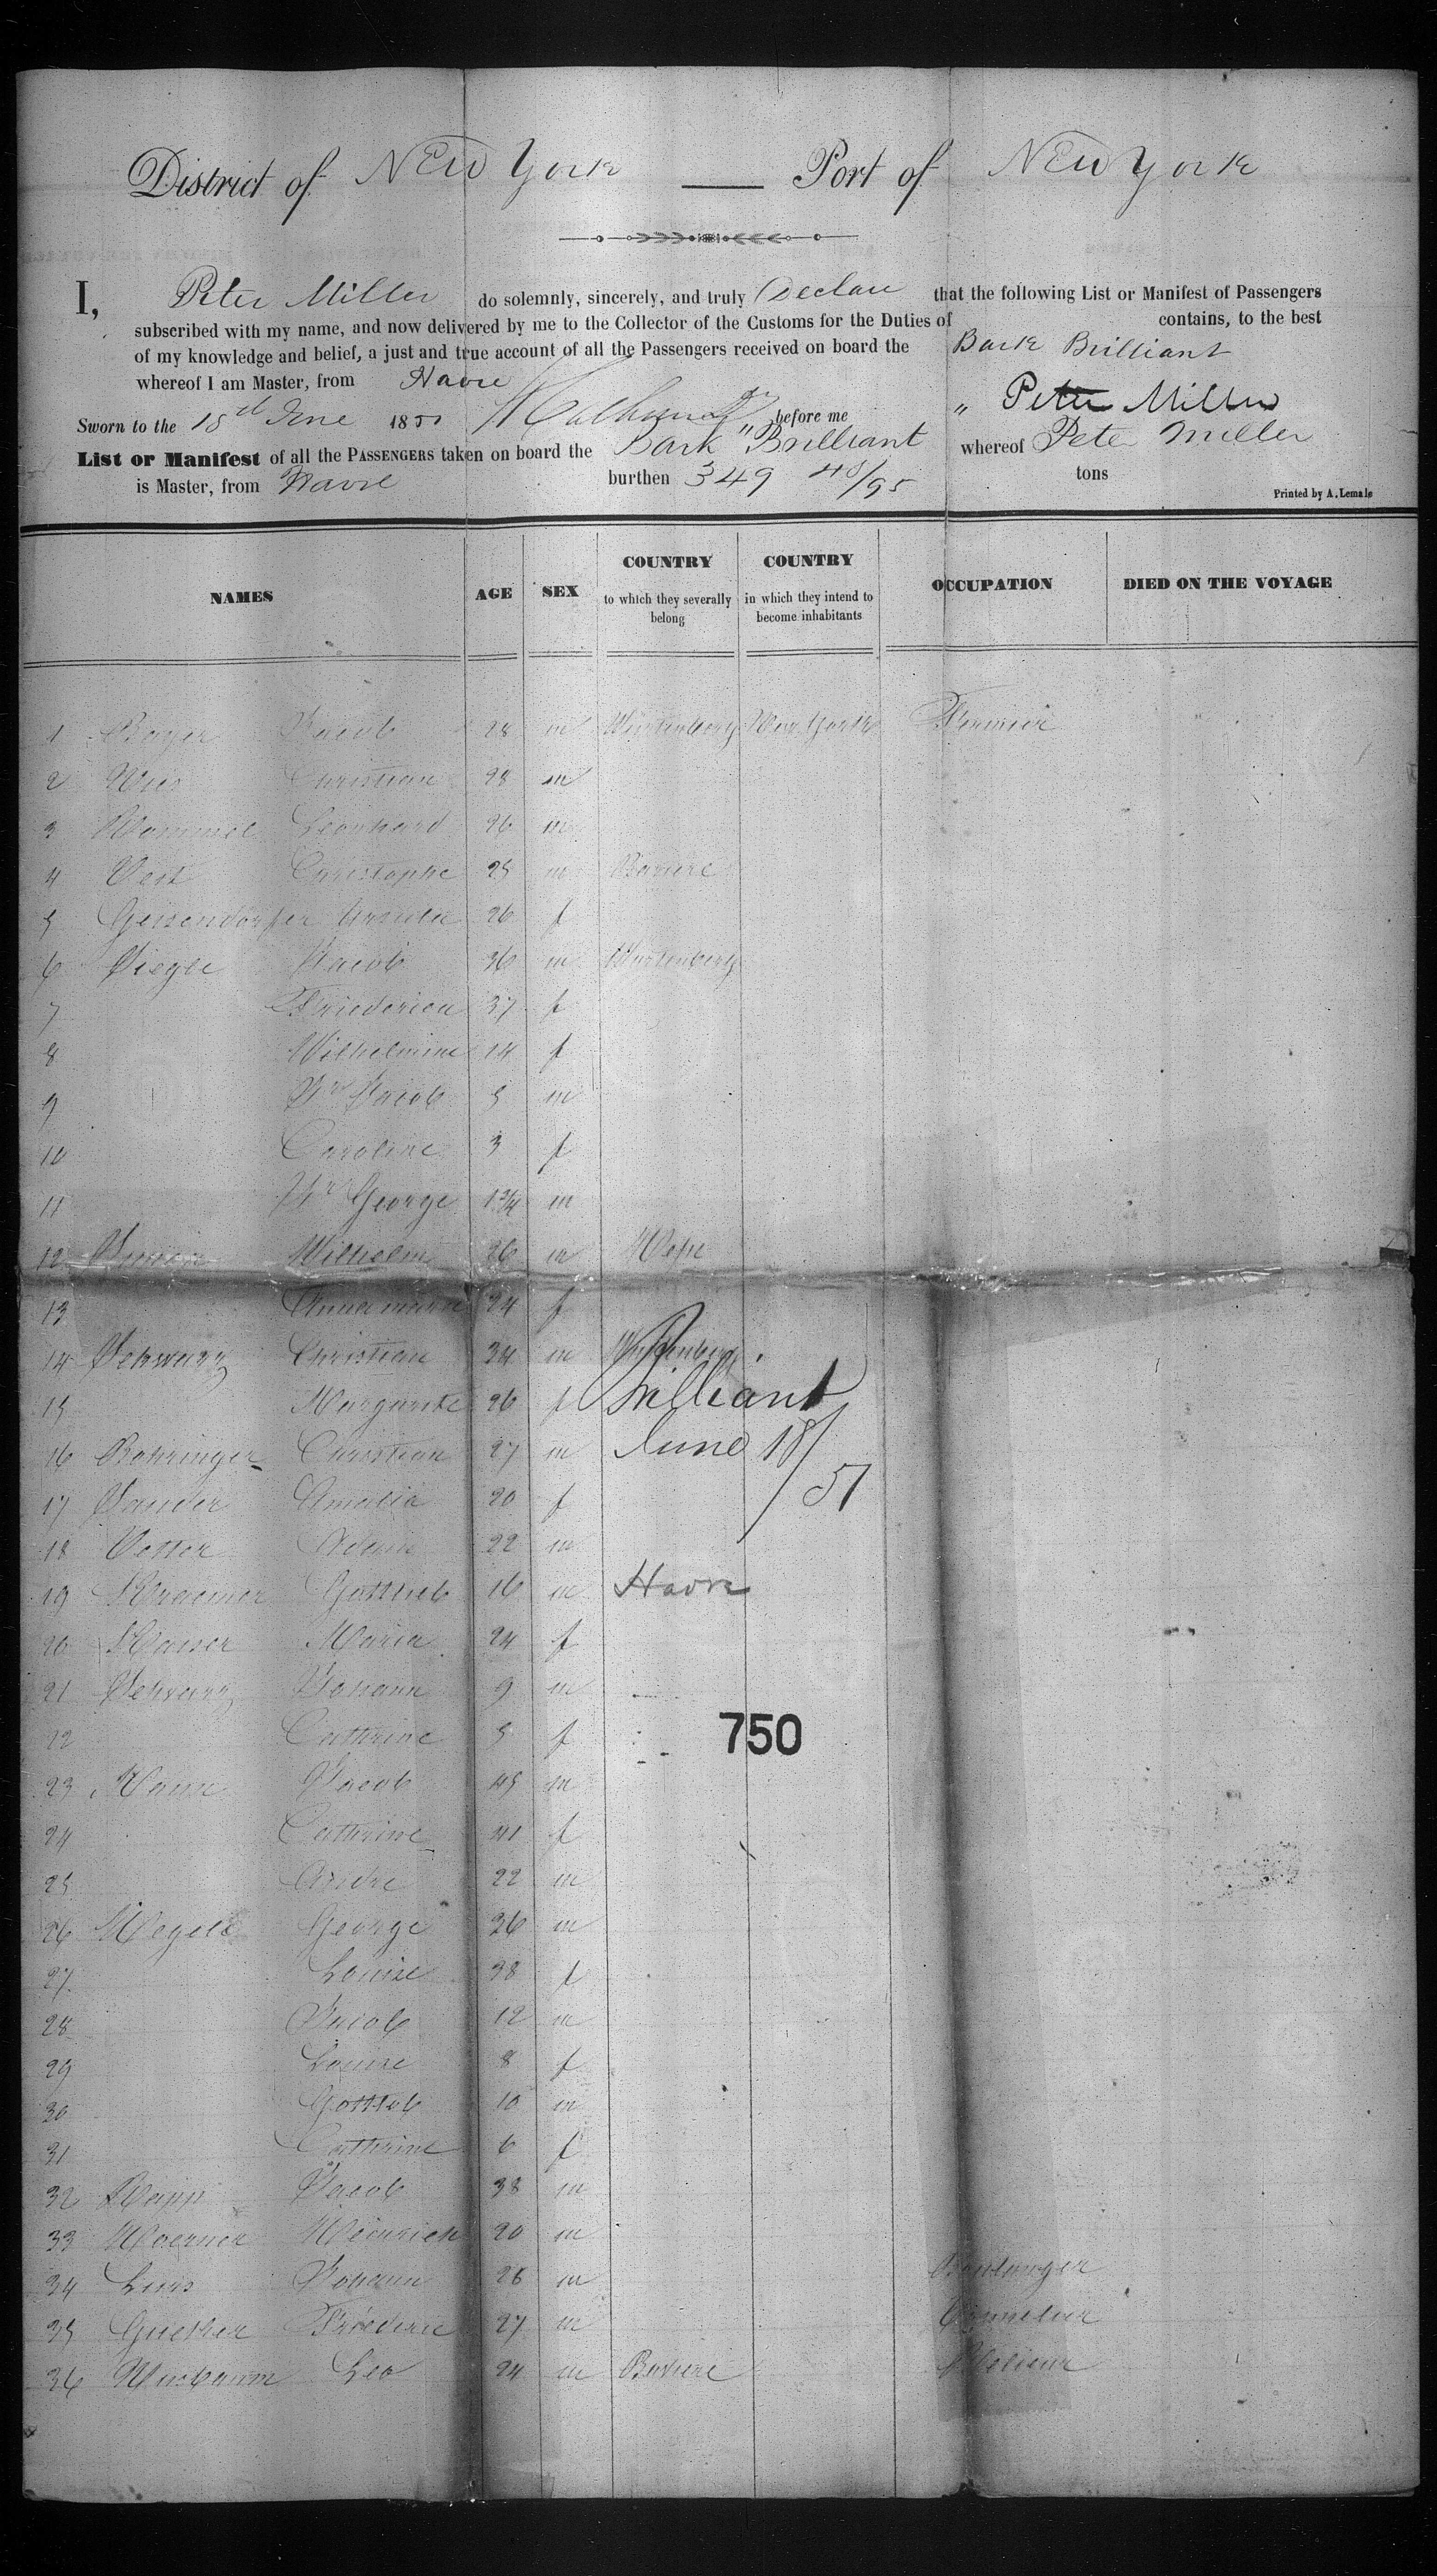 District of New York — Port of New York
I, Peter Miller do solemnly, sincerely, and truly Declare that the following List or Manifest of Passengers
subscribed with my name, and now delivered by me to the Collector of the Customs for the Duties of contains, to the best
of my knowledge and belief, a just and true account of all the Passengers received on board the Bark Brilliant
whereof I am Master, from Havre
" Peter Miller
Sworn to the 18th June 1851 before me
List or Manifest of all the PASSENGERS taken on board the Bark "Brilliant whereof Peter Miller
is Master, from Havre burthen 349 48/95 tons
Printed by A. Lemale
NAMES AGE SEX COUNTRY to which they severally belong COUNTRY in which they intend to become inhabitants OCCUPATION DIED ON THE VOYAGE
1 Boger Jacob 28 m Wurtemberg New York Fermier
2 Christian 28 m
3 Rommel Leonhard 26 m
4 Veit Christophe 25 m Baviere
5 Geissendorfer Ursula 26 f
6 Siegle Jacob 36 m Wurtemberg
7 Friederica 37 f
8 Wilhelmine 14 f
9 Jn Jacob 5 m
10 Caroline 3 f
11 Jn George 1 3/4 m
12 Wilhelm 26 m
13 Anna maria 24 f
14 Schwarz Christian 34 m Wurtemberg
15 Margarete 26 f
Brilliant
16 Bohringer Christian 27 m
June 18/51
17 Sauder Amalia 20 f
18 Vetter Adam 22 m
19 Kraemer Gottlieb 16 m
Havre
20 Kaiser Maria 24 f
21 Schwarz Johann 9 m
22 Cathrine 5 f
750
23 Jacob 45 m
24 Cathrine 41 f
25 Andre 22 m
26 George 36 m
27 Louise 38 f
28 Jacob 12 m
29 Louise 8 f
30 Gottleb 10 m
31 Cathrine 6 f
32 Rapp Jacob 38 m
33 Woerner Heinrich 20 m
34 Johann 26 m Boulanger
35 Friederic 27 m Tonnelier
36 Nusbaum Leo 24 m Baviere Relieur